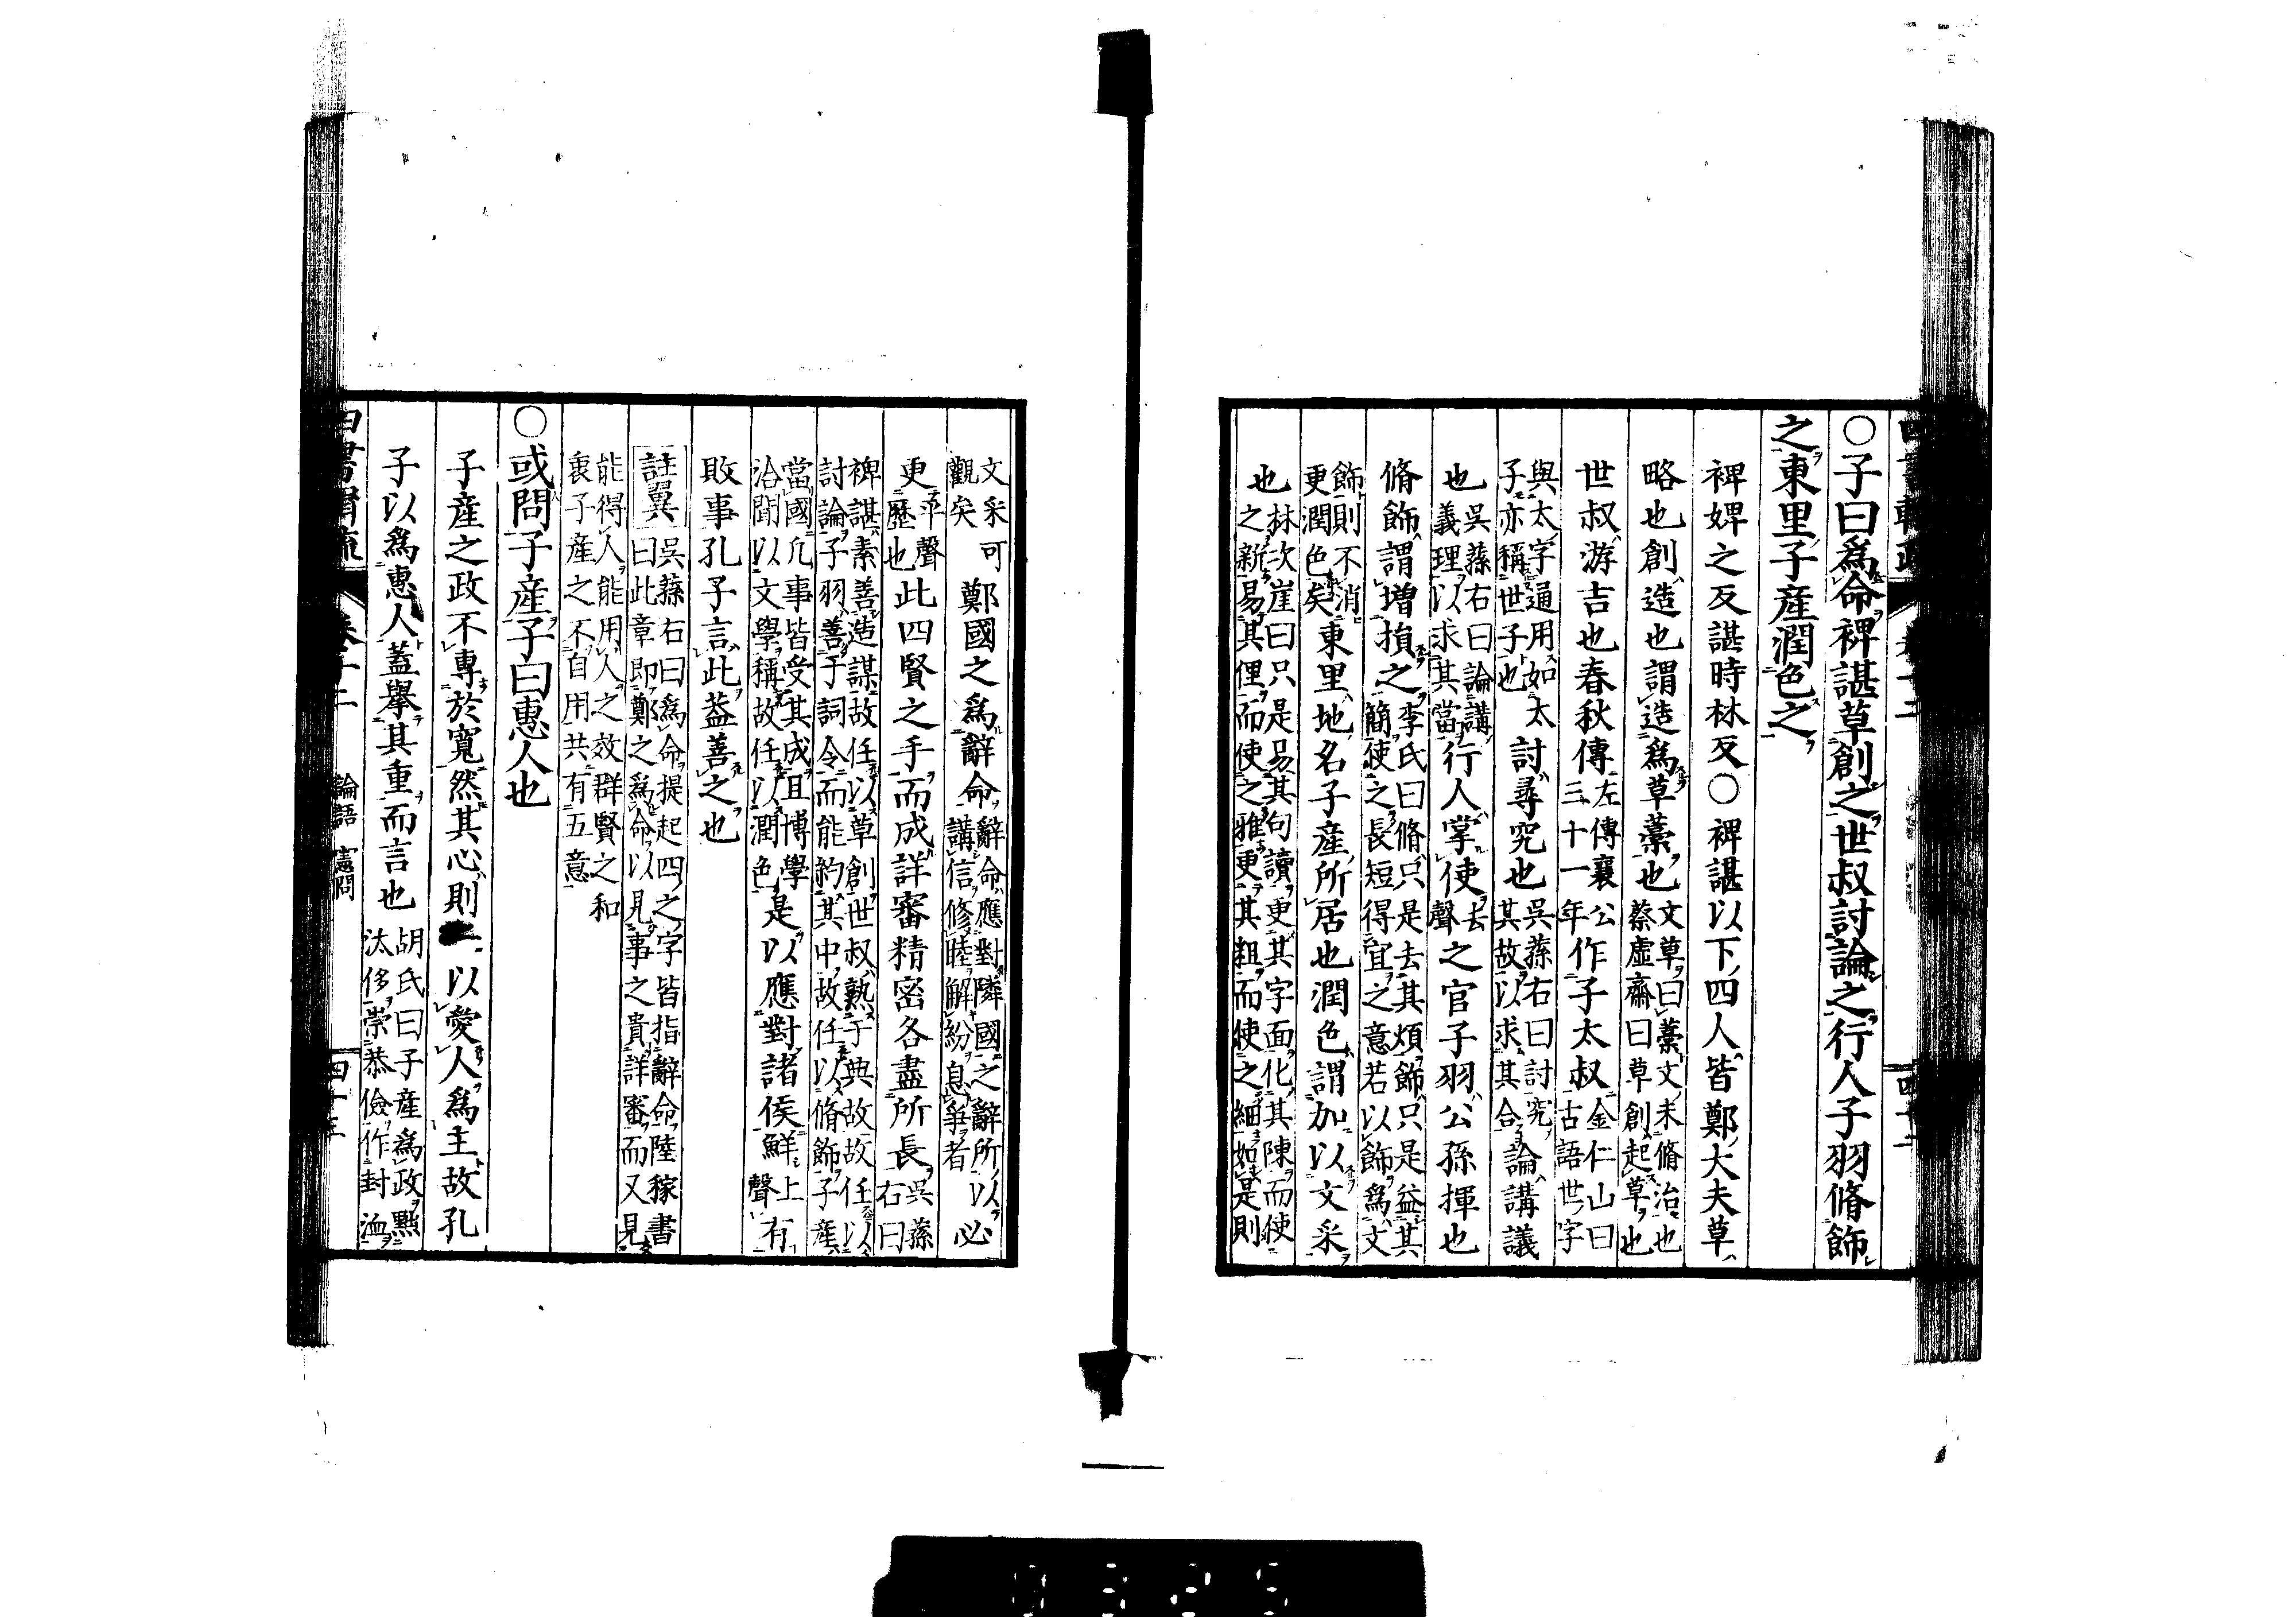 ○子曰爲命裨諶草創之世叔討論之行人子羽脩飾
之東里子產潤色之
裨婢之反諶時林反○裨諶以下四人皆鄭大夫草
略也創造也謂造爲草藁也
文草曰藁文未脩治也
蔡虛齋曰草創起草也
世叔游吉也春秋傳
左傳襄公
三十一年
作子太叔
金仁山曰
古語世字
與太字通用如太
子亦稱世子也
討尋究也
吳蓀右曰討究
其故以求其合
論講議
也
吳蓀右曰論講
義理以求其當
行人掌使
去
聲
之官子羽公孫揮也
脩飾謂增損之
李氏曰脩只是去其煩飾只是益其
簡使之長短得宜之意若以飾爲文
飾則不消
更潤色矣
東里地名子產所居也潤色謂加以文采
也
林次崖曰只是易其句讀更其字面化其陳而使
之新易其俚而使之雅更其粗而使之細如是則
文采可
觀矣
鄭國之爲辭命
辭命應對隣國之辭所以
講信修睦解紛息爭者
必
更
平聲
歷也
此四賢之手而成詳審精密各盡所長
吳蓀
右曰
裨諶素善造謀故任以草創世叔熟于典故故任以
討論子羽善于詞令而能約其中故任以脩飾子產
當國凢事皆受其成且博學
洽聞以文學稱故任以潤色
是以應對諸侯鮮
上
聲
有
敗事孔子言此葢善之也
註翼
吳蓀右曰爲命提起四之字皆指辭命陸稼書
曰此章即鄭之爲命以見事之貴詳審而又見
能得人能用人之效群賢之和
衷子產之不自用共有五意
○或問子產子曰惠人也
子產之政不專於寬然其心則一以愛人爲主故孔
子以爲惠人蓋舉其重而言也
胡氏曰子產爲政黜
汰侈崇恭儉作封洫
論語 憲問